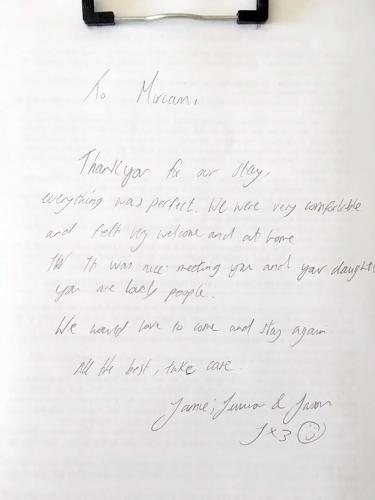 To Miriam,
Thank you for our stay,
everything was perfect. We were very comfortable
and felt very welcome and at home
It was nice meeting you and your daught
you are lovely people.
We would love to come and stay again
All the best, take care.
Jamie, & Jason
J x3 ☺